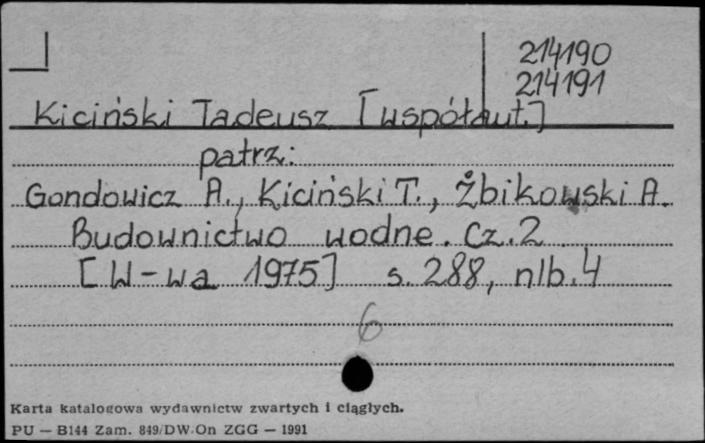 214190
214191
Kiciński Tadeusz [współaut.]
patrz:
Gondowicz A., Kiciński T., Żbikowski A.
Budownictwo wodne. Cz. 2
[W-wa 1975] s. 288, nlb. 4
6
Karta katalogowa wydawnictw zwartych i ciągłych.
PU — B144 Zam. 849/DW-On ZGG — 1991